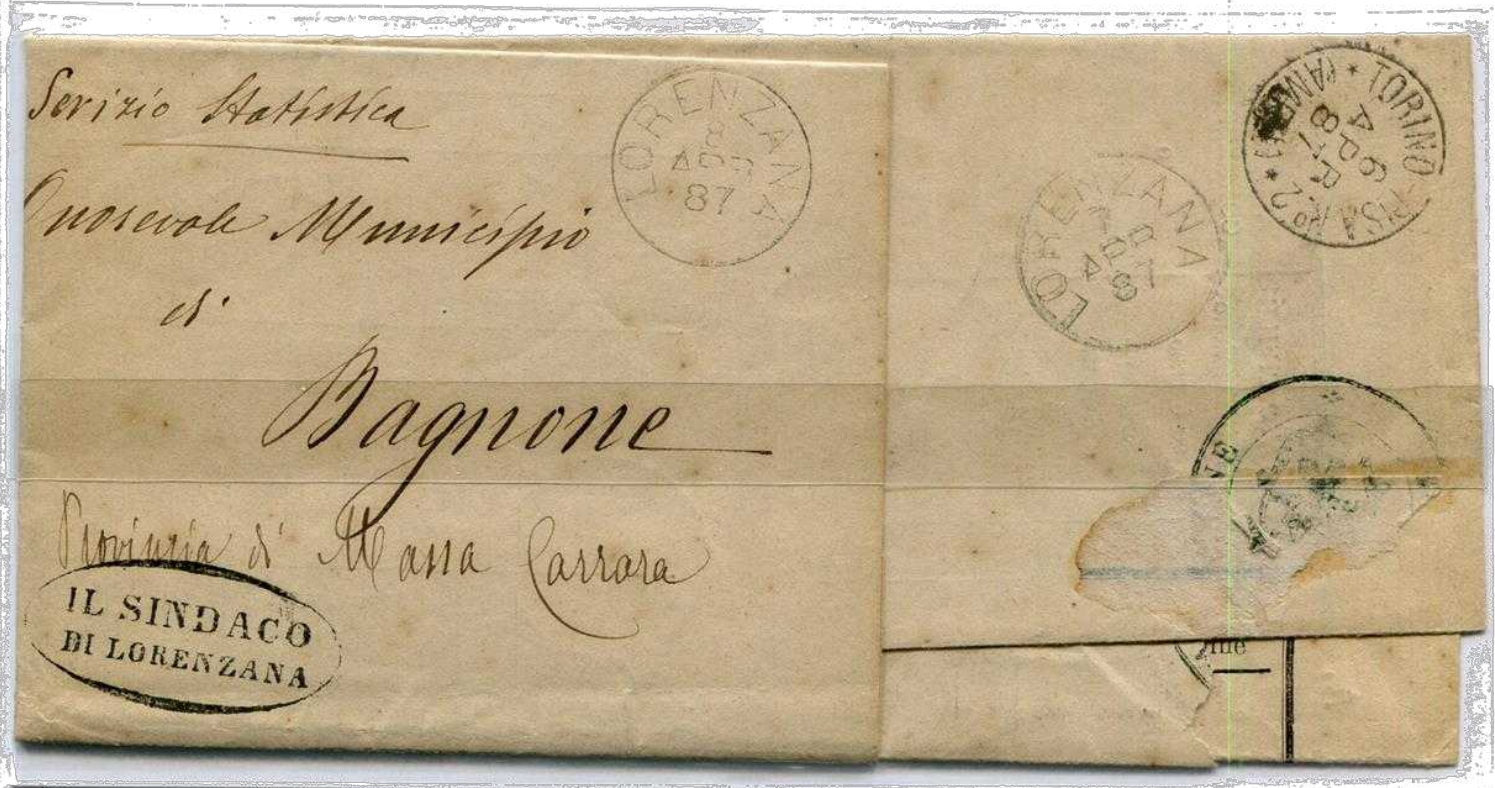 Servizio Statistica
Onorevole Municipio
di
Bagnone
Provincia di Massa Carrara
IL SINDACO
DI LORENZANA
LORENZANA
APR
87
LORENZANA
7
APR
87
TORINO-PISA No. 2
(AMB
6
APR
87
NE
me